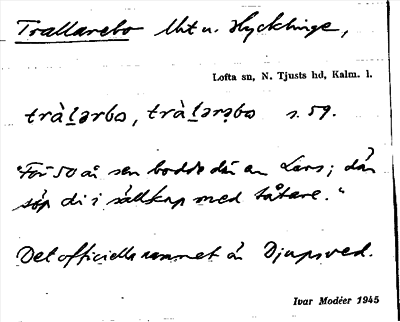 Trallarebo lht u. Hycklinge,
Lofta sn, N. Tjusts hd, Kalm. l.
tràl̲ərbo, tràl̲ərəbo s. 59.
"För 50 år sen bodde där en Lars; där
söp di i sällskap med tåtare."
Det officiella namnet är Djupsved.
Ivar Modéer 1945